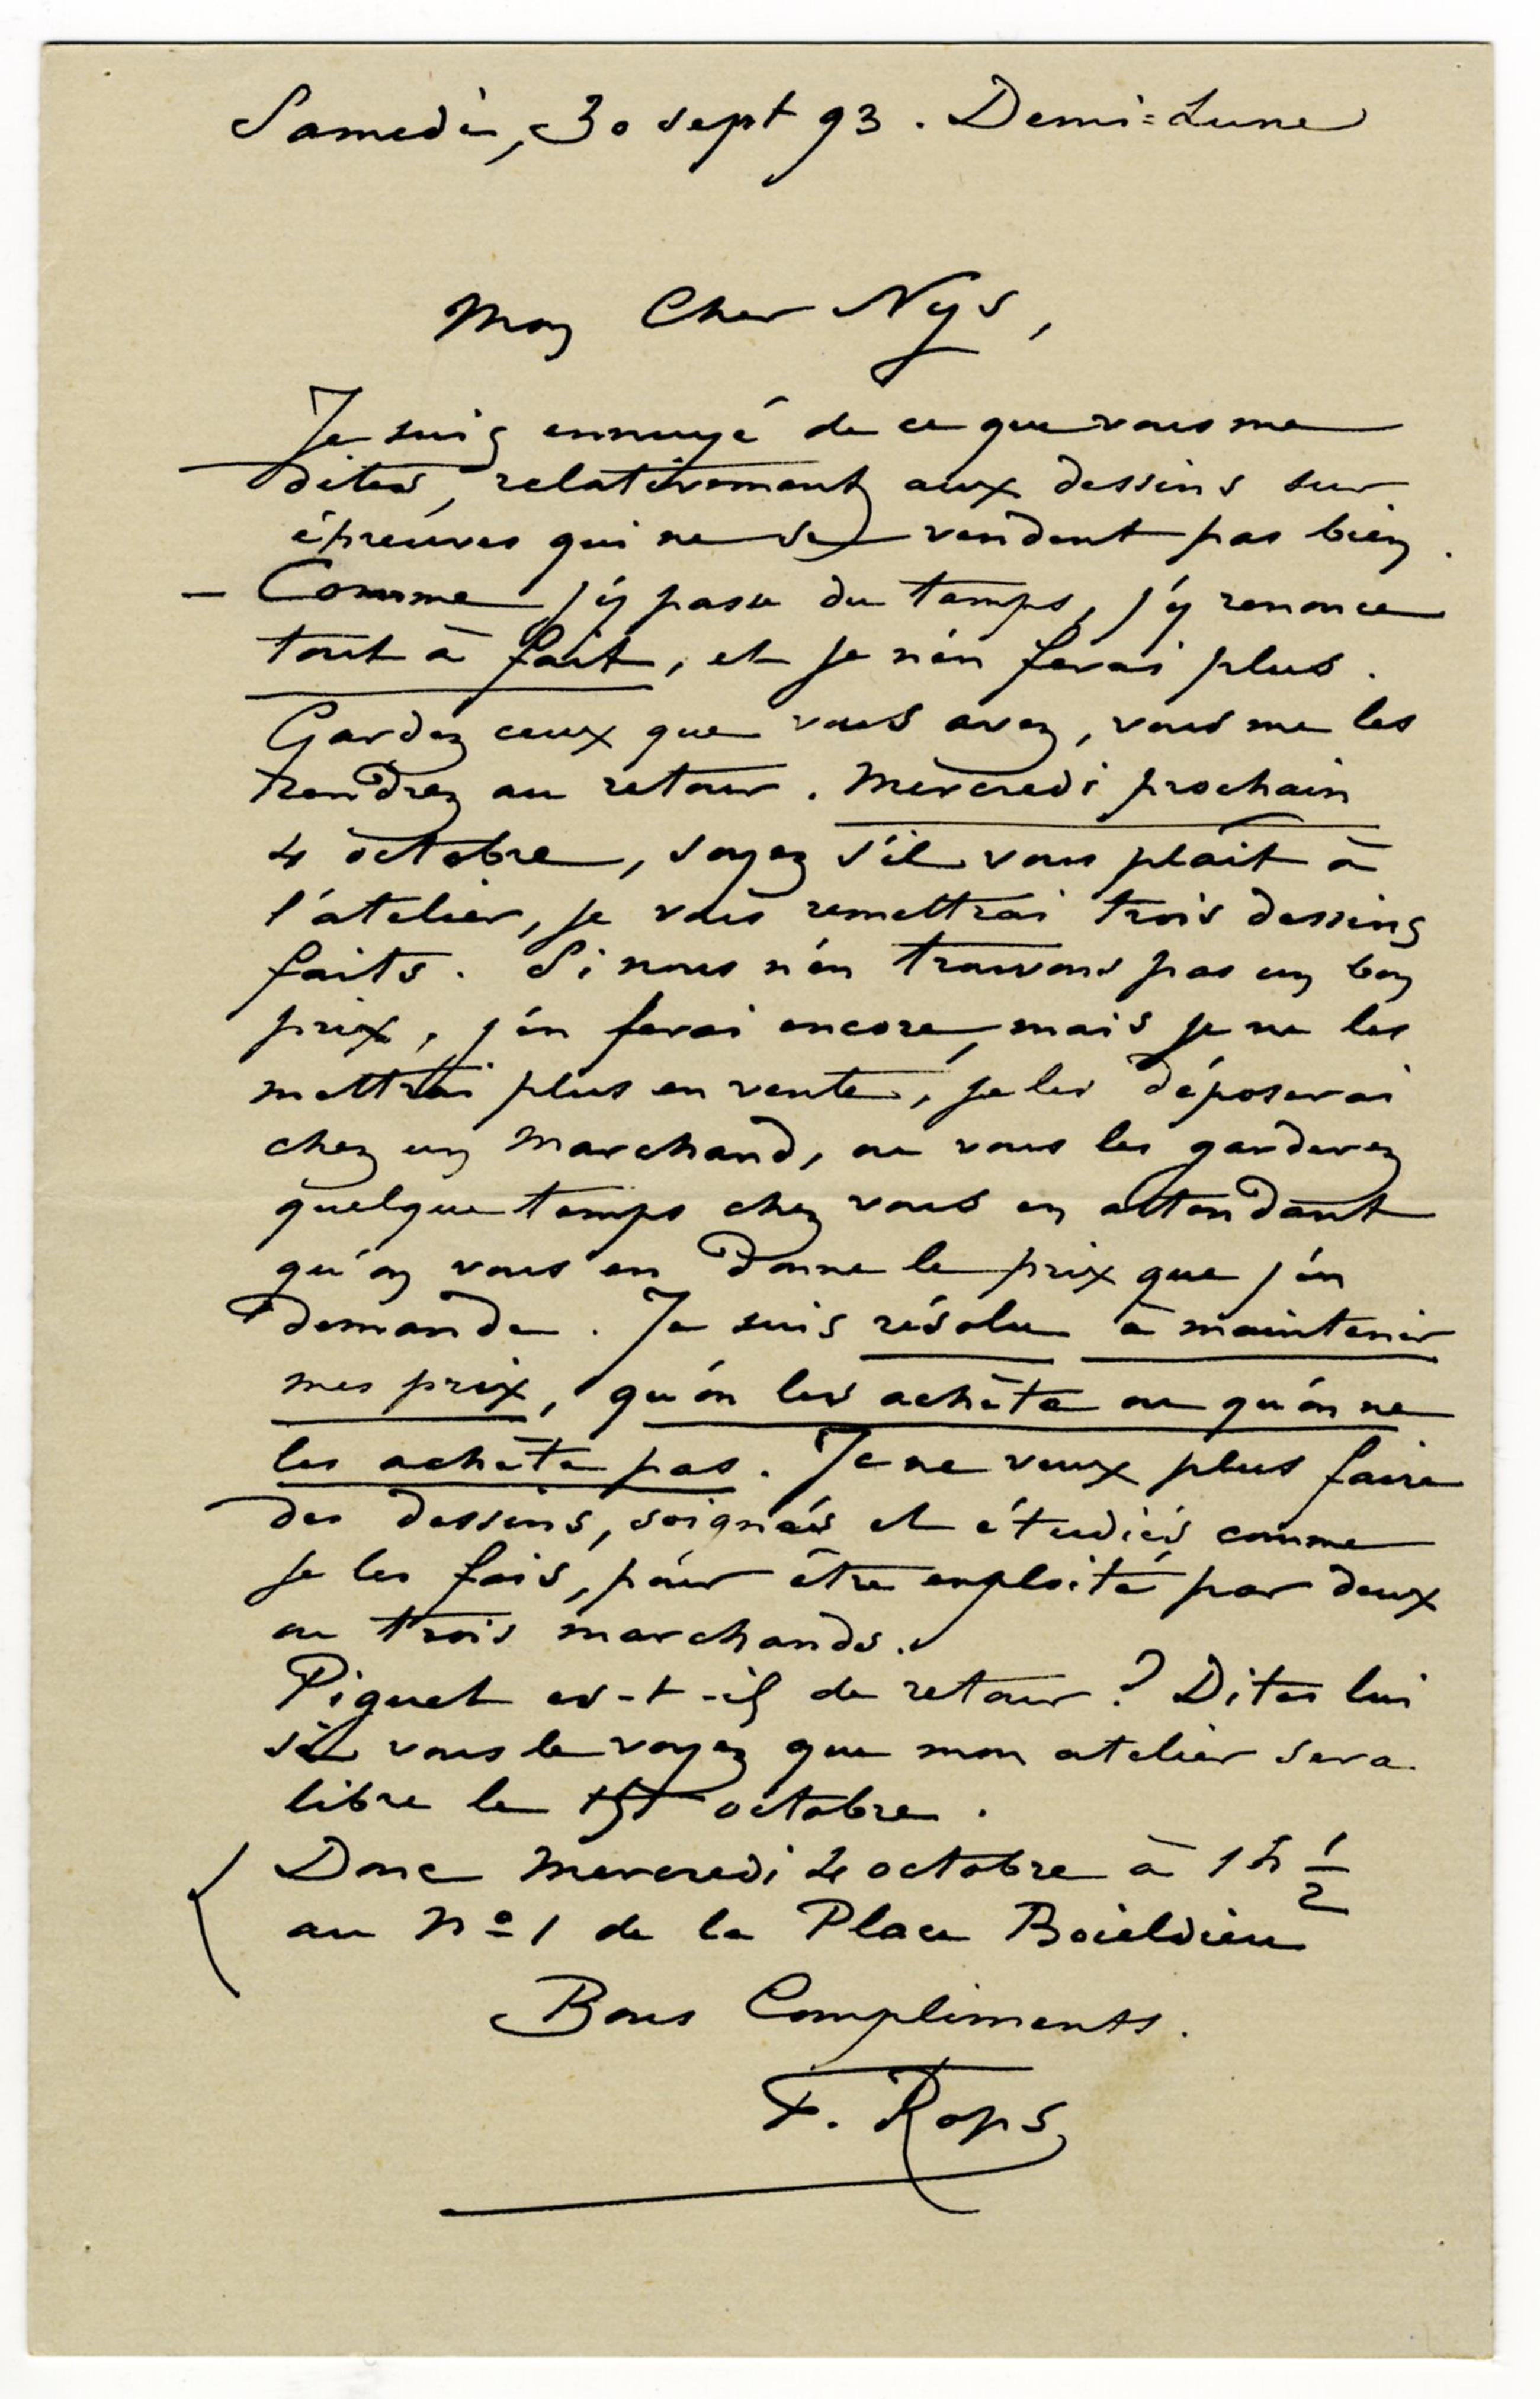 Samedi, 30 sept 93. Demi=Lune
Mon Cher Nys,
Je suis ennuyé de ce que vous me
dites, relativement aux dessins sur
épreuves qui ne se vendent pas bien.
– Comme j'y passe du temps, j'y renonce
tout à fait, et je n'en ferai plus.
Gardez ceux que vous avez, vous me les
rendrez au retour. Mercredi prochain
4 octobre, soyez s'il vous plait à
l'atelier, je vous remettrai trois dessins
faits. Si nous n'en trouvons pas un bon
prix, j'en ferai encore, mais je ne les
mettrai plus en vente, je les déposerai
chez un marchand, ou vous les garderez
quelque temps chez vous en attendant
qu'on vous en donne le prix que j'en
demande. Je suis résolu à maintenir
mes prix, qu'on les achète ou qu'on ne
les achète pas. Je ne veux plus faire
des dessins, soignés et étudiés comme
je les fais, pour être exploité par deux
ou trois marchands.
Piquet es-t-il de retour? Dites lui
si vous le voyez que mon atelier sera
libre le 15 octobre.
Donc Mercredi 4 octobre à 1 h 1/2
au Nº 1 de la Place Boieldieu
Bons Compliments.
F. Rops